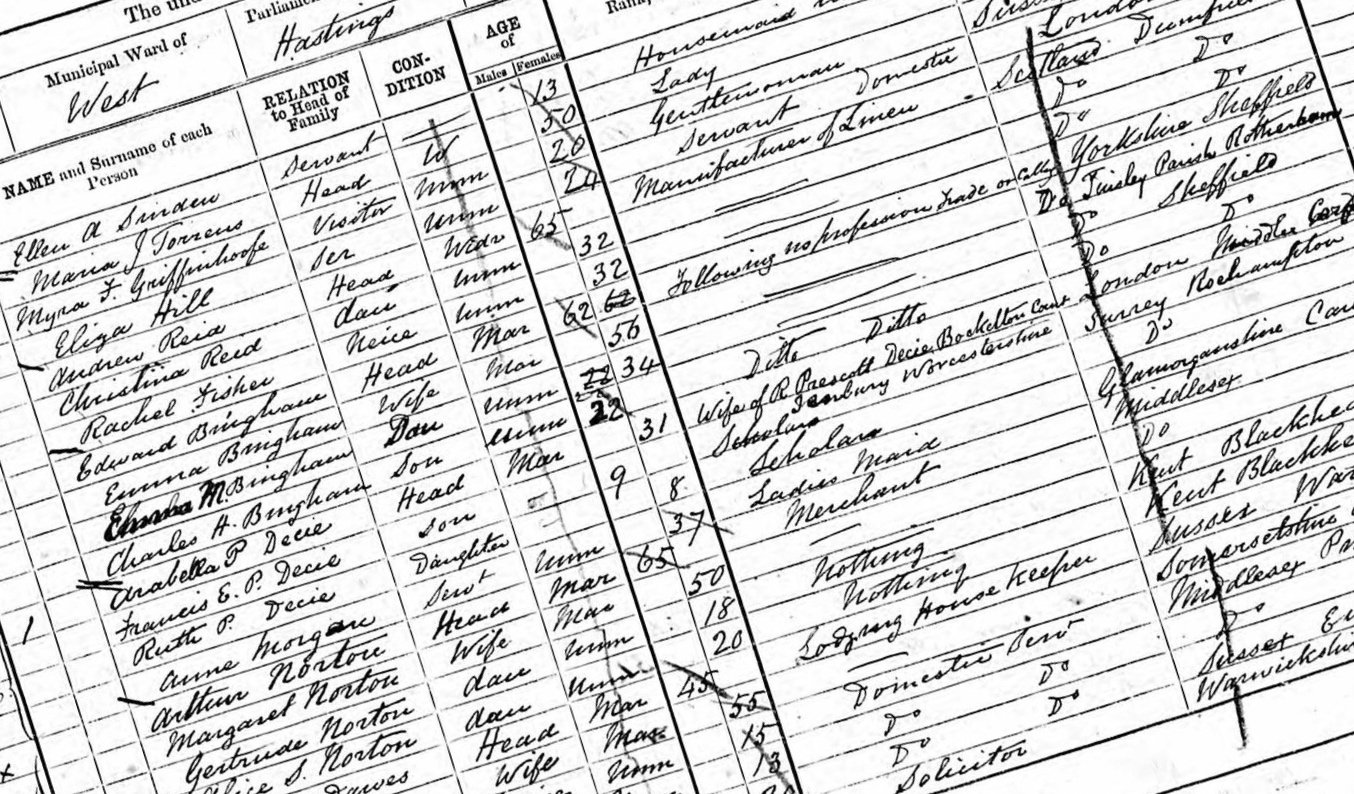 The undi
Municipal Ward of
West
Parliamen
Hastings
NAME and Surname of each Person
Ellen A Sinden
Maria J Torrens
Myra F. Griffinhoofe
Eliza Hill
Andrew Reid
Christina Reid
Rachel Fisher
Edward Bingham
Emma Bingham
Emma M. Bingham
Charles H. Bingham
Arabella P Decie
Francis E. P. Decie
Ruth P. Decie
Anne Morgan
1
Arthur Norton
Margaret Norton
Gertrude Norton
Alice S. Norton
Dawes
RELATION
to Head of
Family
Servant
Head
Visitor
Ser
Head
dau
Neice
Head
Wife
Dau
Son
Head
Son
Daughter
Servt
Head
Wife
dau
dau
Head
Wife
CON-
DITION
W
Unm
Unm
Wedr
Unm
Unm
Mar
Mar
Unm
Unm
Mar
Unm
Mar
Mar
Unm
Unm
Mar
Mar
Unm
AGE
of
Males Females
13
50
20
24
65
32
32
62 62
56
22 34
22
31
9
8
37
65
50
18
20
45
55
15
13
Rank,
Housemaid
Lady
Gentlewoman
Servant Domestic
Manufacturer of Linen
Following no profession Trade or Callg
Ditto Ditto
Wife of R Prescott Decie Bockelton Court
Tenbury Worcestershire
Scholar
Scholar
Ladies Maid
Merchant
Nothing
Nothing
Lodging House Keeper
Domestic Serv
Do
Do
Do
Do
Solicitor
Sussex
London
Scotland Dumfries
Do Do
Do Do
Yorkshire Sheffield
Do Tinsley Parish Rotherham
Do Sheffield
Do Do
London Middlx
Surrey Roehampton
Do
Glamorganshire Car
Middlesex
Do
Kent Blackhea
Kent Blackhe
Sussex War
Somersetshire
Middlesex
Do
Sussex
Warwickshir